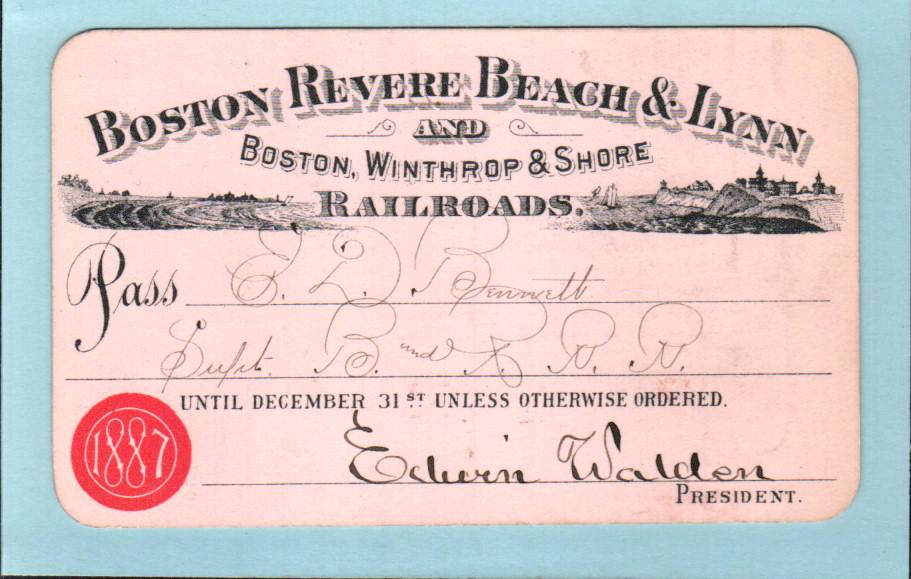 BOSTON REVERE BEACH & LYNN
AND
BOSTON, WINTHROP & SHORE
RAILROADS.
Pass E. D. Bennett
Supt. B. and R. R.
UNTIL DECEMBER 31ST UNLESS OTHERWISE ORDERED.
1887
Edwin Walden
PRESIDENT.